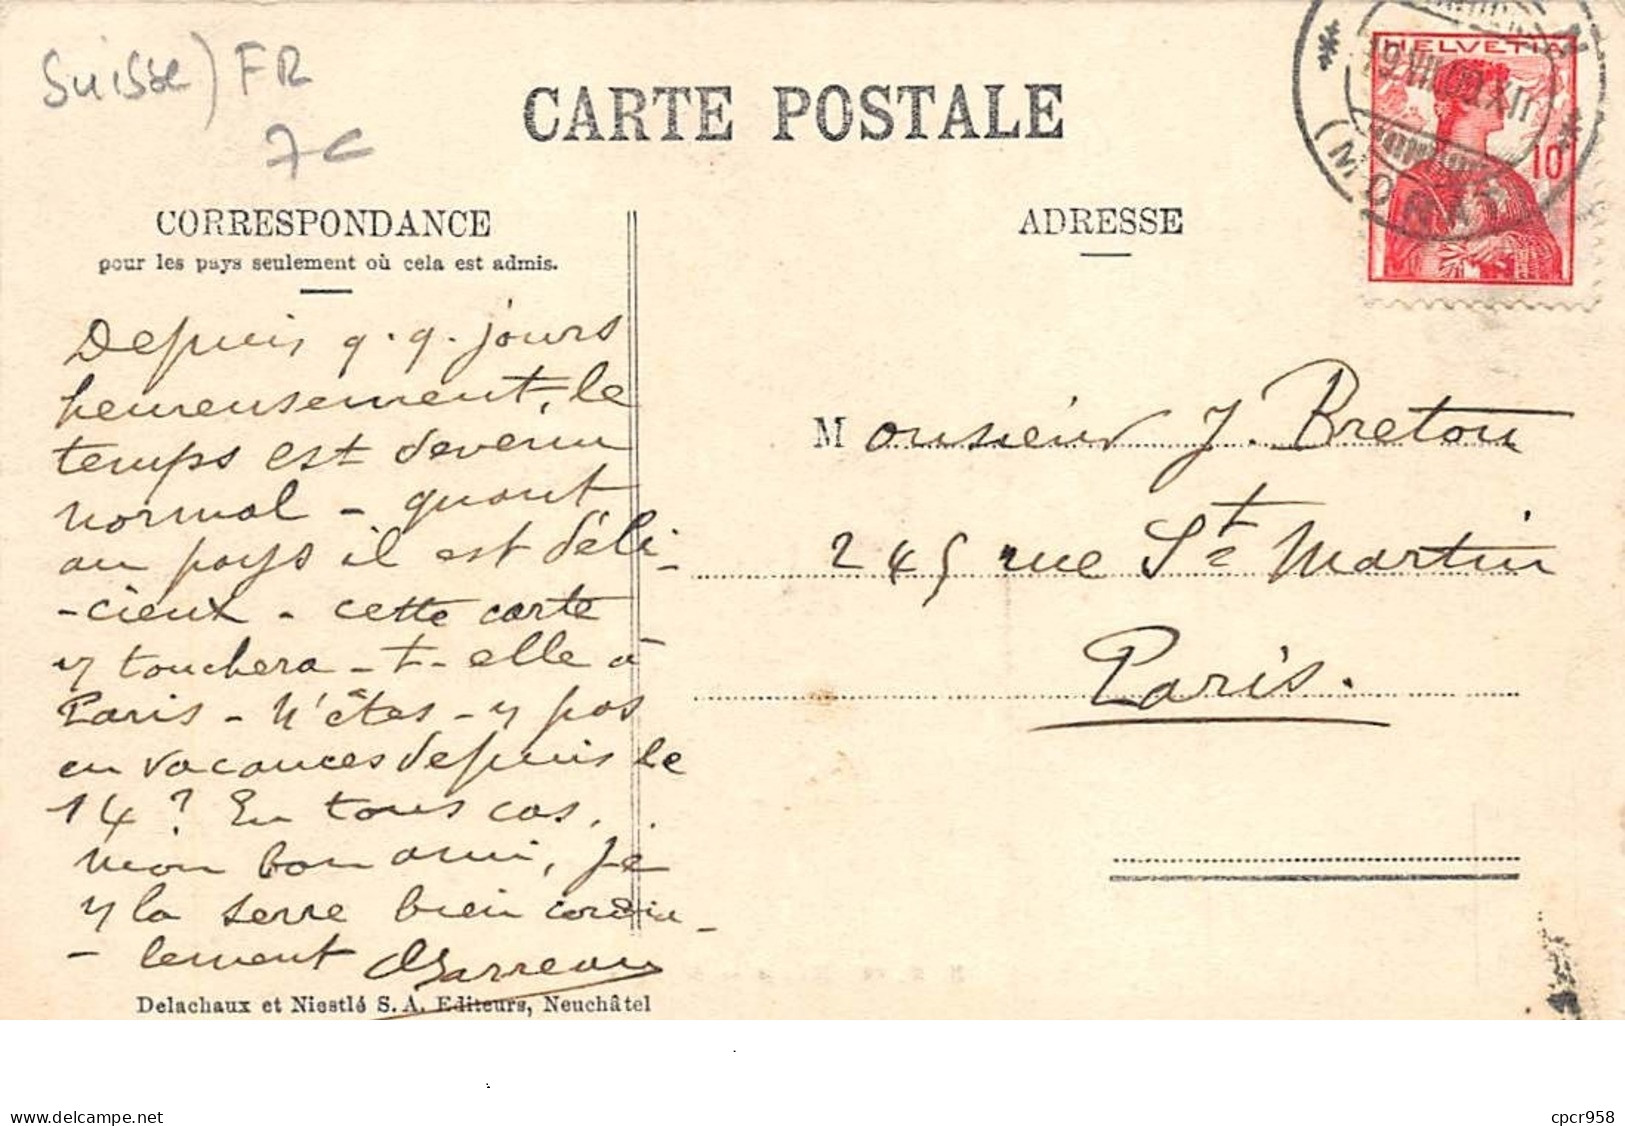 Suisse) FR
7c
CARTE POSTALE
HELVETIA
10
(MORAT)
CORRESPONDANCE
pour les pays seulement où cela est admis.
Depuis q.q. jours
heureusement, le
temps est devenu
normal - quant
au pays il est déli-
-cieux - cette carte
y touchera-t-elle à
Paris - N'êtes-y pas
en vacances depuis le
14? En tous cas,
mon bon ami, je
y la serre bien cordia-
-lement
Delachaux et Niestlé S. A. Editeurs, Neuchâtel
ADRESSE
Monsieur J. Breton
245 rue St Martin
Paris.
www.delcampe.net
cpcr958